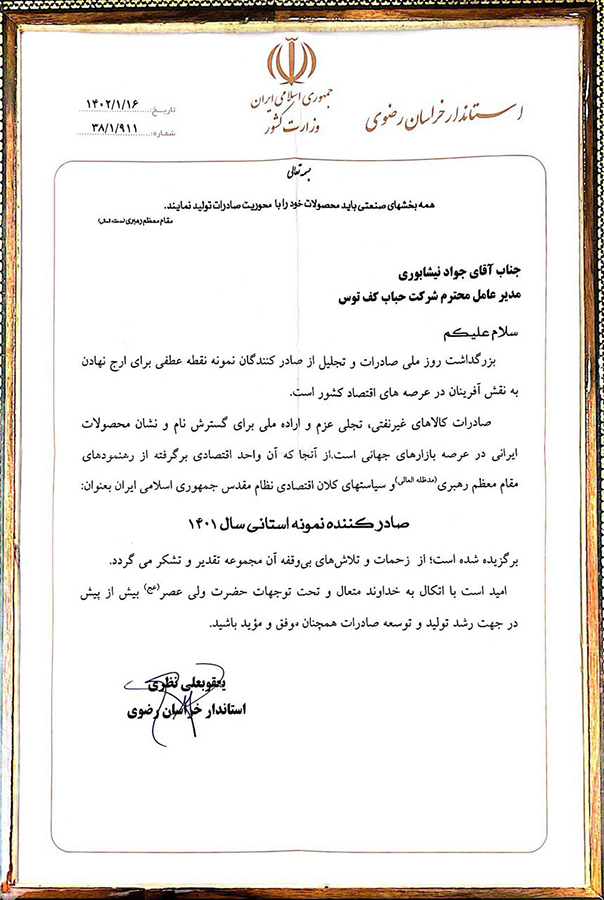 جمهوری اسلامی ایران
وزارت کشور
استاندار خراسان رضوی
تاریخ: ۱۴۰۲/۱/۱۶
شماره: ۳۸/۱/۹۱۱
بسمه تعالی
همه بخشهای صنعتی باید محصولات خود را با محوریت صادرات تولید نمایند.
مقام معظم رهبری (مدظله العالی)
جناب آقای جواد نیشابوری
مدیر عامل محترم شرکت حباب کف توس
سلام علیکم
بزرگداشت روز ملی صادرات و تجلیل از صادر کنندگان نمونه نقطه عطفی برای ارج نهادن
به نقش آفرینان در عرصه های اقتصاد کشور است.
صادرات کالاهای غیرنفتی، تجلی عزم و اراده ملی برای گسترش نام و نشان محصولات
ایرانی در عرصه بازارهای جهانی است.از آنجا که آن واحد اقتصادی برگرفته از رهنمودهای
مقام معظم رهبری(مدظله العالی)و سیاستهای کلان اقتصادی نظام مقدس جمهوری اسلامی ایران بعنوان:
صادر کننده نمونه استانی سال ۱۴۰۱
برگزیده شده است؛ از زحمات و تلاش‌های بی‌وقفه آن مجموعه تقدیر و تشکر می گردد.
امید است با اتکال به خداوند متعال و تحت توجهات حضرت ولی عصر(عج) بیش از پیش
در جهت رشد تولید و توسعه صادرات همچنان موفق و مؤید باشید.
یعقوبعلی نظری
استاندار خراسان رضوی